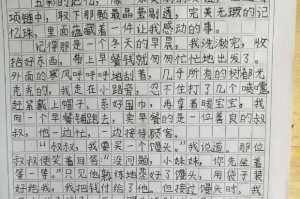 五彩的记忆，像
项链中，取下那颗最晶莹剔透，完美无瑕的记
忆珠，里面蕴藏着一件让我感动的事。
记得那是一个冬天的早晨，我洗漱完，收
拾好东西，带上早餐钱就匆匆忙忙地出发了。
外面的寒风呼呼呼地刮着，几乎所有的树都光
秃秃的，我走在小路旁，忍不住打了几个喷嚏
赶紧戴上帽子，系好围巾，再拿着暖宝宝，我
向一个早餐铺跑去，卖早餐的是一位善良的叔
叔，他一边忙，一边接待顾客。
“叔叔，我要买一个馒头。”我说道。那位
叔叔便笑着回答：“没问题，小妹妹，你先坐着
等一等。”只见他熟练地蒸好了馒头，用袋子装
好给我，我把钱付给了他。但接过馒头时，我